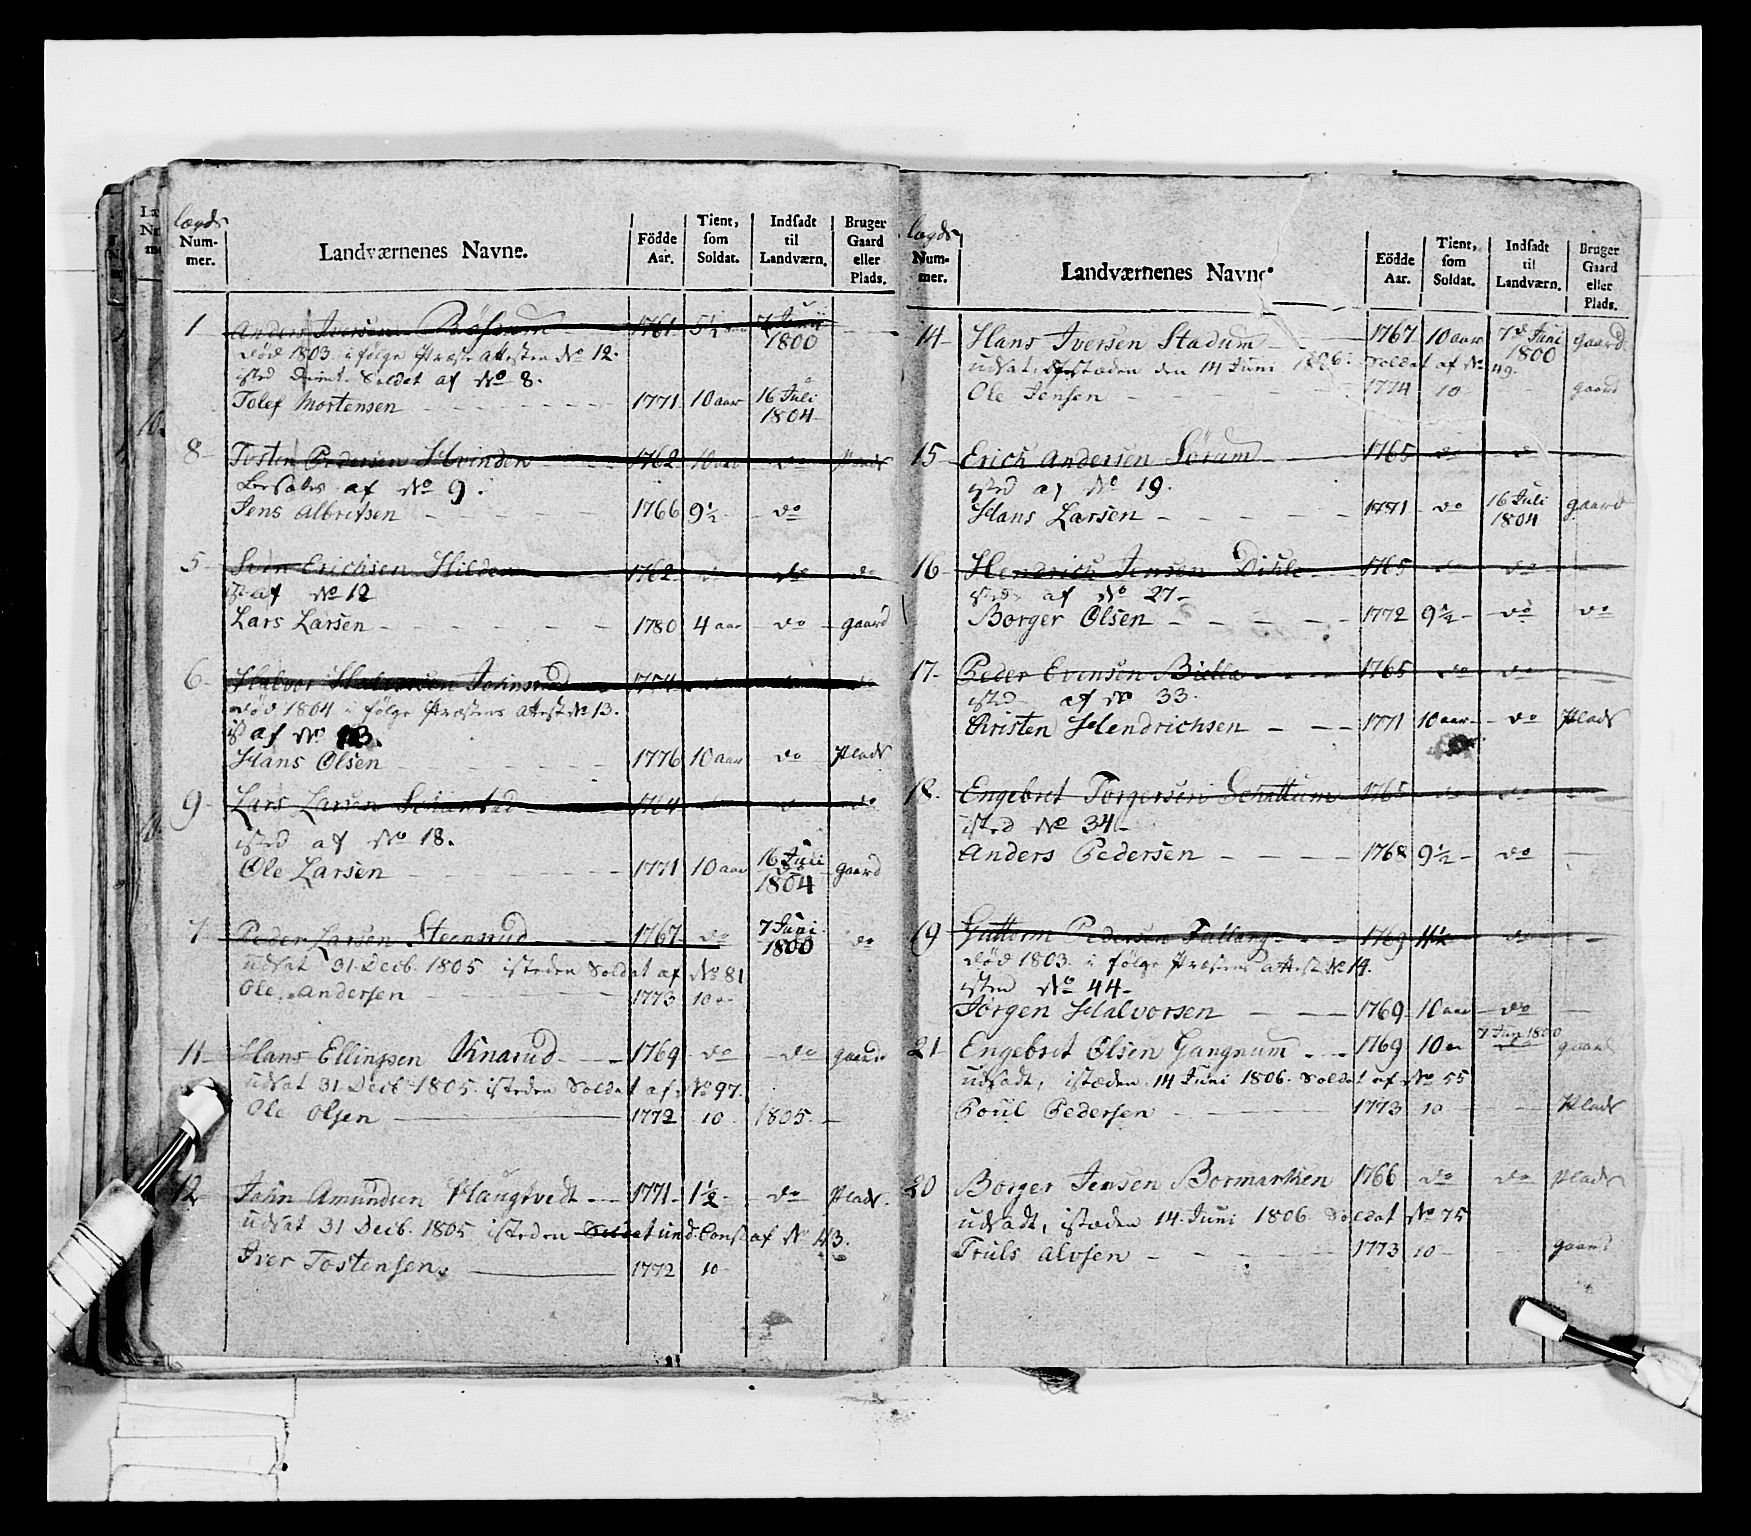 lægds
Num-
mer.
Landværnenes Navne.
Födde
Aar.
Tient,
som
Soldat.
Indsadt
til
Landværn.
Bruger
Gaard
eller
Plads.
1 Anders Iversen 1761 5½ 7 Junii 1800
Död 1803 i följe Præste Attesten No 12.
isted Soldat af No 8.
Tolef Mortensen 1771 10 aar 16 Juli 1804
8 Tosten Pedersen Hvinden 1762 10 aar do Plads
af No 9.
Jens Albretsen 1766 9½ do
5 Sven Erichsen Hilden 1762 do do do
ist af No 12
Lars Larsen 1780 4 aar do gaard
6 Halvor Halvorsen 1774
Död 1804 i följe Præstens Attest No 13.
ist af No 13.
Hans Olsen 1776 10 aar do Plads
9 Lars Larsen 1764 do
isted af No 18.
Ole Larsen 1771 10 aar 16 Juli 1804 gaard
7 Peder Larsen Steensrud 1767 do 7 Juni 1800 do
udsat 31 Decb. 1805 isteden Soldat af No 81
Ole Andersen 1773 10
11 Hans Ellingsen Knarud 1769 do do gaard
udsat 31 Decb. 1805 isteden Soldat af No 97.
Ole Olsen 1772 10 1805
12 Jahn Amundsen Haugtvedt 1771 1½ do Plads
udsat 31 Decb. 1805 isteden Soldat und. Cons af No 43.
Iver Tostensen 1772 10
lægds
Num-
mer.
Landværnenes Navne
Födde
Aar.
Tient,
som
Soldat.
Indsadt
til
Landværn.
Bruger
Gaard
eller
Plads.
14 Hans Iversen Stadum 1767 10 aar 7d Juni 1800 gaard
udsat, istæden den 14 Juni 1806. Soldat af No 49.
Ole Jensen 1774 10 gaard
15 Erich Andersen Sörum 1765 do do
isted af No 19.
Hans Larsen 1771 do 16 Juli 1804 gaard
16 Hendrich Jensen 1765 do do
isted af No 27
Borger Olsen 1772 9½ do do
17 Peder Evensen 1765 do do
isted af No 33.
Christen Hendrichsen 1771 10 aar do Plads
18 Engebret Torgersen Schattum 1765 do do
isted No 34
Anders Pedersen 1768 9½ do
19 Guttorm Pedersen Fallang 1769 11½ do
Död 1803 i följe Præstens Attest No 14.
isted No 44
Jörgen Halvorsen 1769 10 aar do
21 Engebret Olsen Gangnum 1769 10 7 Jun 1800 gaard
udsadt, istæden 14 Juni 1806. Soldat af No 55
Poul Pedersen 1773 10 Plads
20 Borger Jensen Bormarken 1766 do do Plads
udsadt, istæden 14 Juni 1806 Soldat No 75
Truls Alvsen 1773 10 gaard